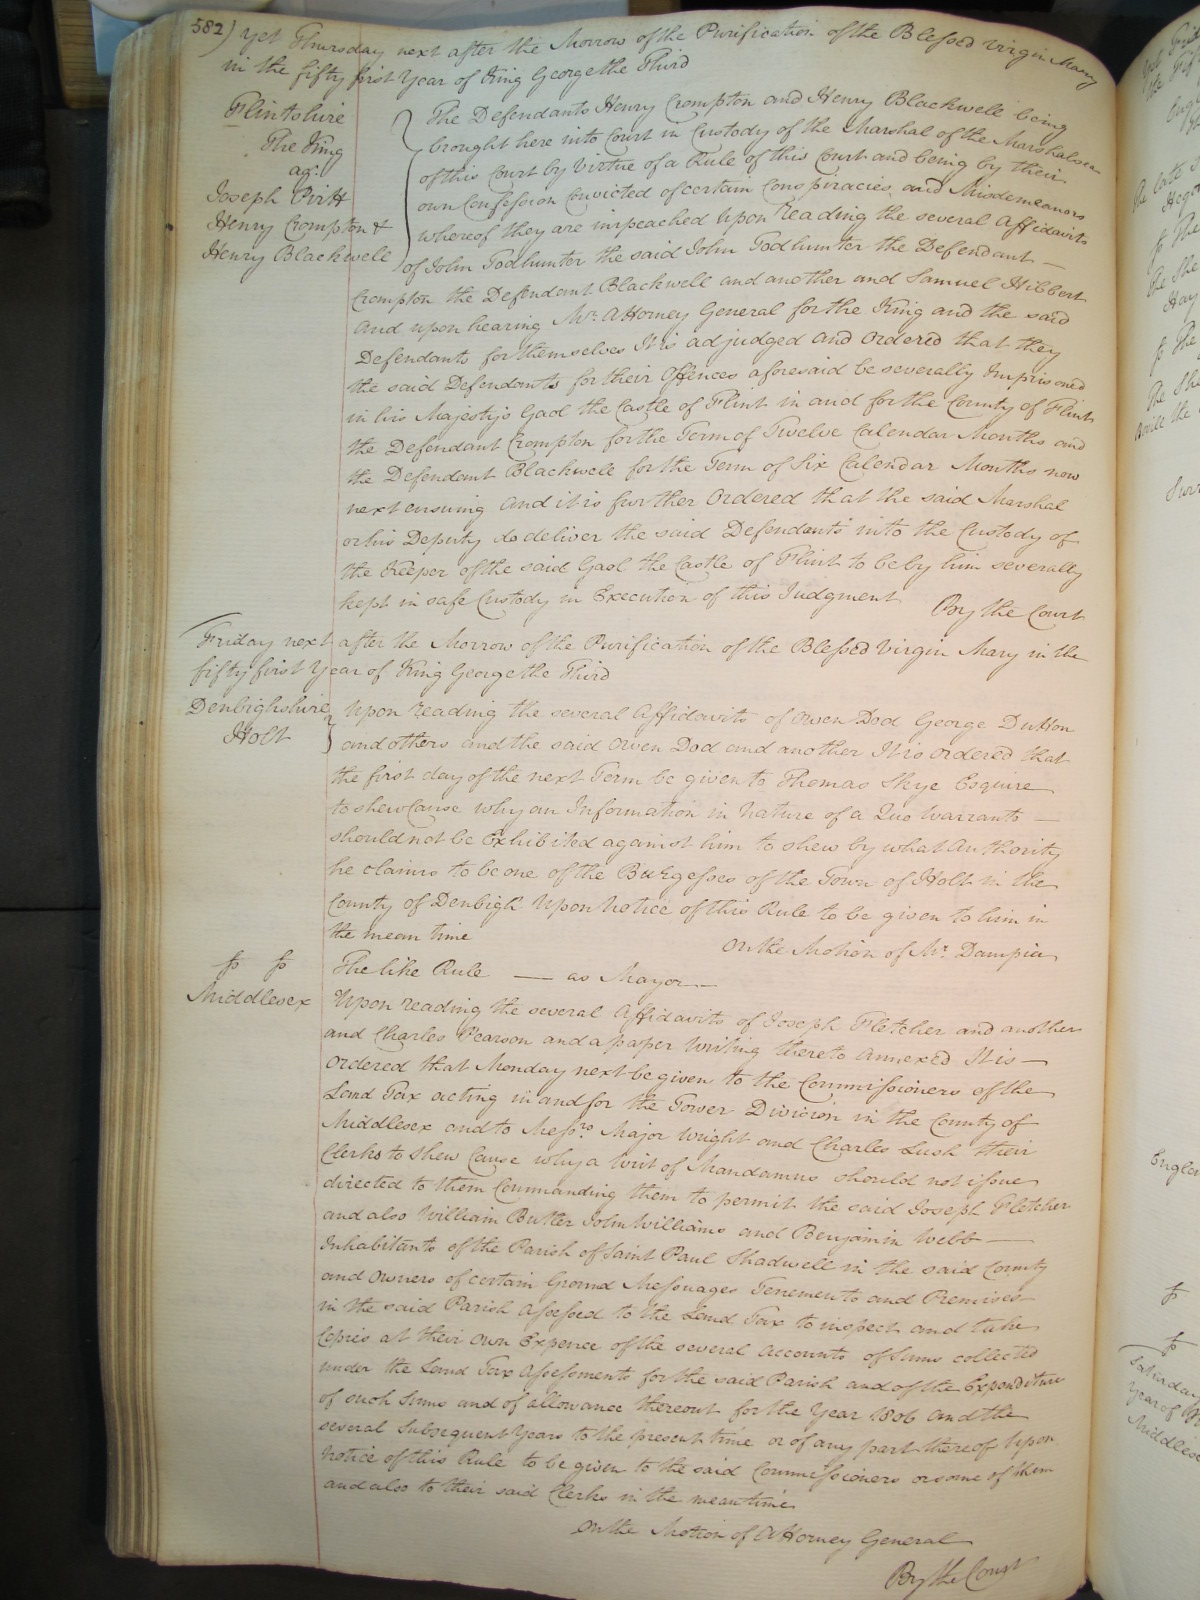 582) Yet Thursday next after the Morrow of the Purification of the Blessed Virgin Mary
in the fifty first Year of King George the Third
Flintshire
The King
agt.
Joseph Pritt
Henry Crompton &
Henry Blackwell
The Defendants Henry Crompton and Henry Blackwell being
brought here into Court in Custody of the Marshal of the Marshalsea
of this Court by Virtue of a Rule of this Court and being by their
own Confession Convicted of certain Conspiracies and Misdemeanors
whereof they are impeached Upon Reading the several Affidavits
of John Todhunter the said John Todhunter the Defendant —
Crompton the Defendant Blackwell and another and Samuel Hibbert
and upon hearing Mr. Attorney General for the King and the said
Defendants for themselves It is adjudged and Ordered that they
the said Defendants for their Offences aforesaid be severally Imprisoned
in his Majesty's Gaol the Castle of Flint in and for the County of Flint
the Defendant Crompton for the Term of Twelve Calendar Months and
the Defendant Blackwell for the Term of Six Calendar Months now
next ensuing And it is further Ordered that the said Marshal
or his Deputy do deliver the said Defendants into the Custody of
the Keeper of the said Gaol the Castle of Flint to be by him severally
kept in safe Custody in Execution of this Judgment By the Court
Friday next after the Morrow of the Purification of the Blessed Virgin Mary in the
fifty first Year of King George the Third
Denbighshire
Holt
Upon reading the several Affidavits of Owen Dod George Dutton
and others and the said Owen Dod and another It is Ordered that
the first day of the next Term be given to Thomas Skye Esquire
to shew Cause why an Information in Nature of a Quo Warranto —
should not be Exhibited against him to shew by what Authority
he claims to be one of the Burgesses of the Town of Holt in the
County of Denbigh Upon Notice of this Rule to be given to him in
the mean time On the Motion of Mr. Dampier
fo fo The like Rule — as Mayor —
Middlesex
Upon reading the several Affidavits of Joseph Fletcher and another
and Charles Pearson and a paper Writing thereto Annexed It is —
Ordered that Monday next be given to the Commissioners of the
Land Tax acting in and for the Tower Division in the County of
Middlesex and to Messrs. Major Wright and Charles Lush their
Clerks to shew Cause why a Writ of Mandamus should not issue
directed to them Commanding them to permit the said Joseph Fletcher
and also William Butler John Williams and Benjamin Webb —
Inhabitants of the Parish of Saint Paul Shadwell in the said County
and Owners of certain Ground Messuages Tenements and Premises
in the said Parish Assessed to the Land Tax to inspect and take
Copies at their own Expence of the several Accounts of Sums collected
under the Land Tax Assessments for the said Parish and of the Expenditure
of such Sums and of allowance thereout for the Year 1806 and the
several Subsequent Years to the present time or of any part thereof Upon
Notice of this Rule to be given to the said Commissioners or some of them
and also to their said Clerks in the mean time
On the Motion of Attorney General
By the Court